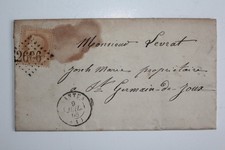 2666
Monsieur Levrat
Joseph Marie propriétaire
St Germain-de-Joux